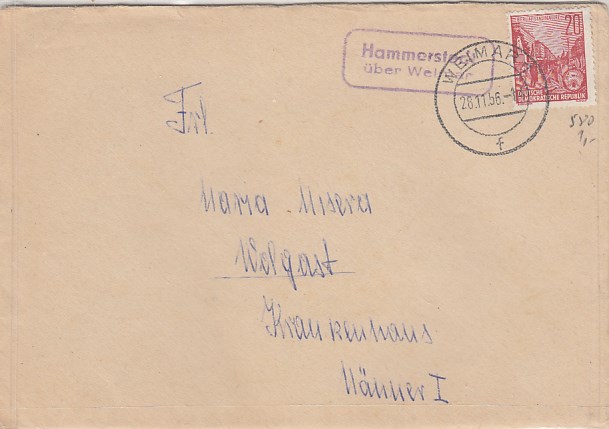 Hammerstedt
über Wei
WEIMAR
28.11.56.-1
f
20
DEUTSCHE
DEMOKRATISCHE REPUBLIK
Frl.
Maria Misera
Wolgast
Krankenhaus
Männer I